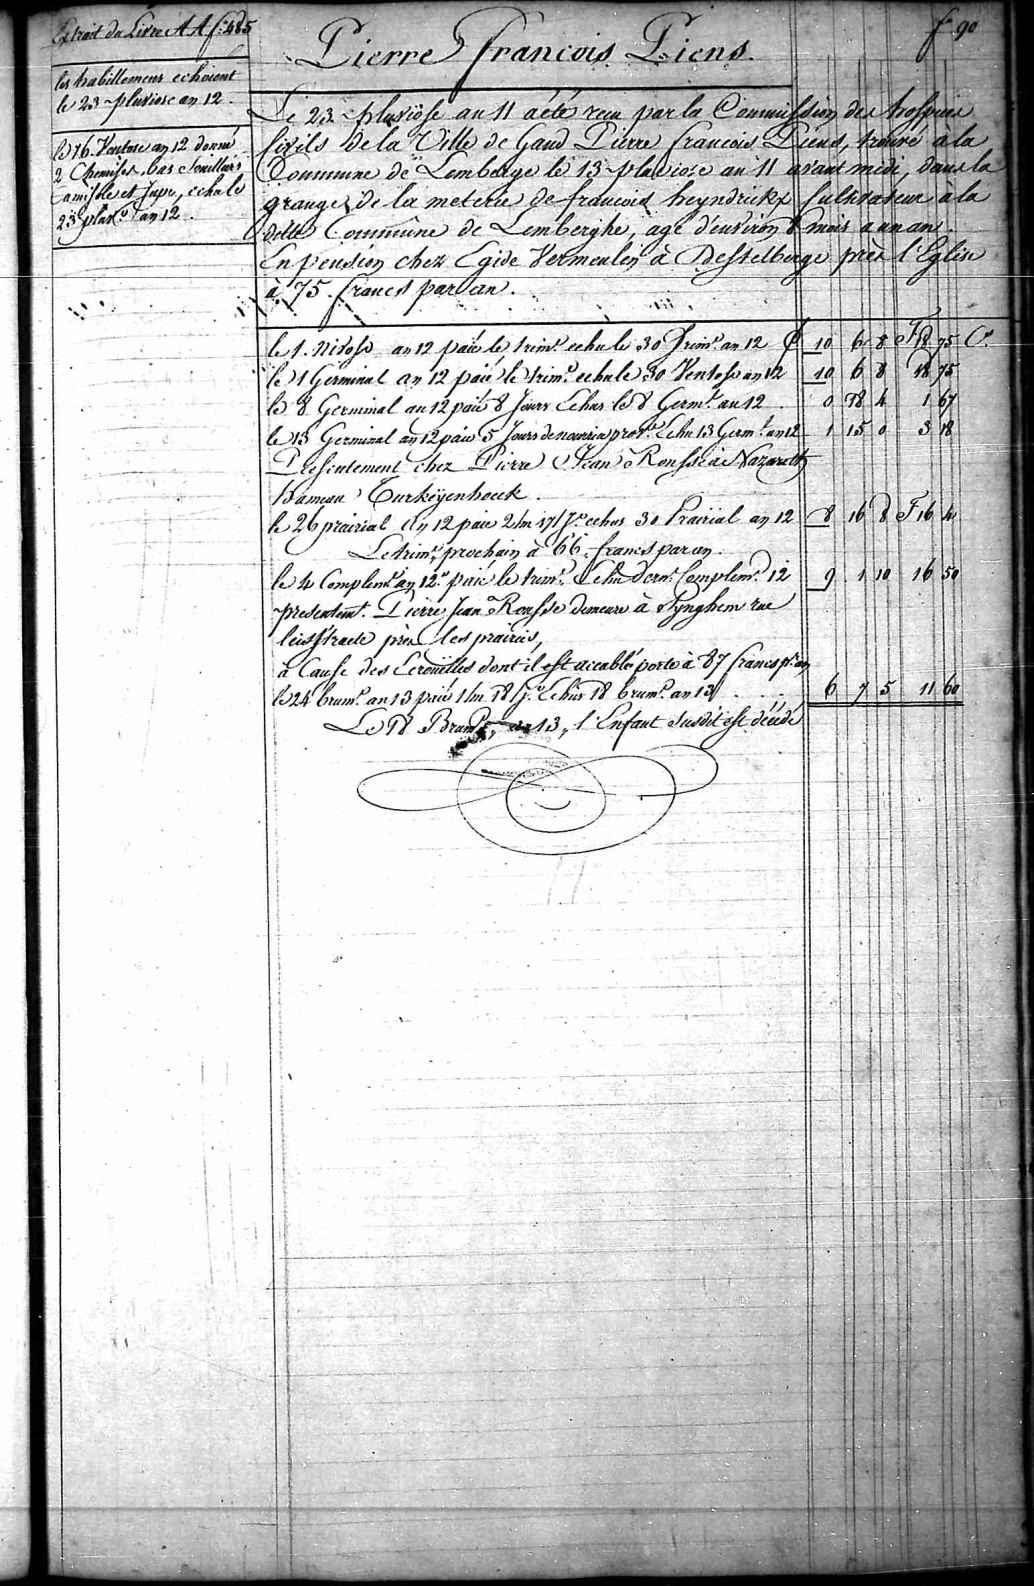 Extrait du Livre AA f° 485
f° 90
Pierre francois Piens.
les habillemens echoient
le 23 pluviose an 12.
le 16. Ventose an 12 donné
2 Chemises, bas e Souilliers
Camisole et Jupe, echu le
23 pluv.e an 12.
Le 23 pluviôse an 11 a été recu par la Commission des hospices
Civils de la Ville de Gand Pierre francois Piens, trouvé à la
Commune de Lemberge le 13 pluviose an 11 avant midi, dans la
grange de la meterie de francois heyndrickx Cultivateur à la
ditte Commûne de Lemberghe, agé d'environ 8 mois a un an.
En pension chez Egide Vermeulen à Desselberge près l'Eglise
à 75. francs par an.
le 1. Nivose an 12 païé le trim.e echu le 30 frim.e an 12 10 6 8 F 18 75 C.s
le 1 Germinal an 12 païé le trim.e echu le 30 Ventose an 12 10 6 8 18 75
le 8 Germinal an 12 païé 8 Jours Echus le 8 Germ.l an 12 0 18 4 1 67
le 13 Germinal an 12 païé 5 Jours de nourrin prov.re Echu 13 Germ.l an 12 1 15 0 3 18
Presentement chez Pierre Jean Ronsse à Nazareth
hameau Turkeÿenhoek.
le 26 prairial an 12 païé 2/m 17/J.s echus 30 Prairial an 12 8 16 8 F 16 4
Le trim.e prochain à 66. francs par an.
le 4 Complem.e an 12.e païé le trim.e Echu dern.r Complem.e 12 9 1 10 16 50
presentem.t Pierre Jean Ronsse demeure à Synghem rue
leisstraete près les prairies,
a Cause des Ecrouilles dont il est accablé porté à 87 francs p.r an
le 24 brum.e an 13 païé 1/m 18/j.s Echus 18 brum.e an 13 6 7 5 11 60
Le 18 Brum.e an 13, l'Enfant Susdit est décédé